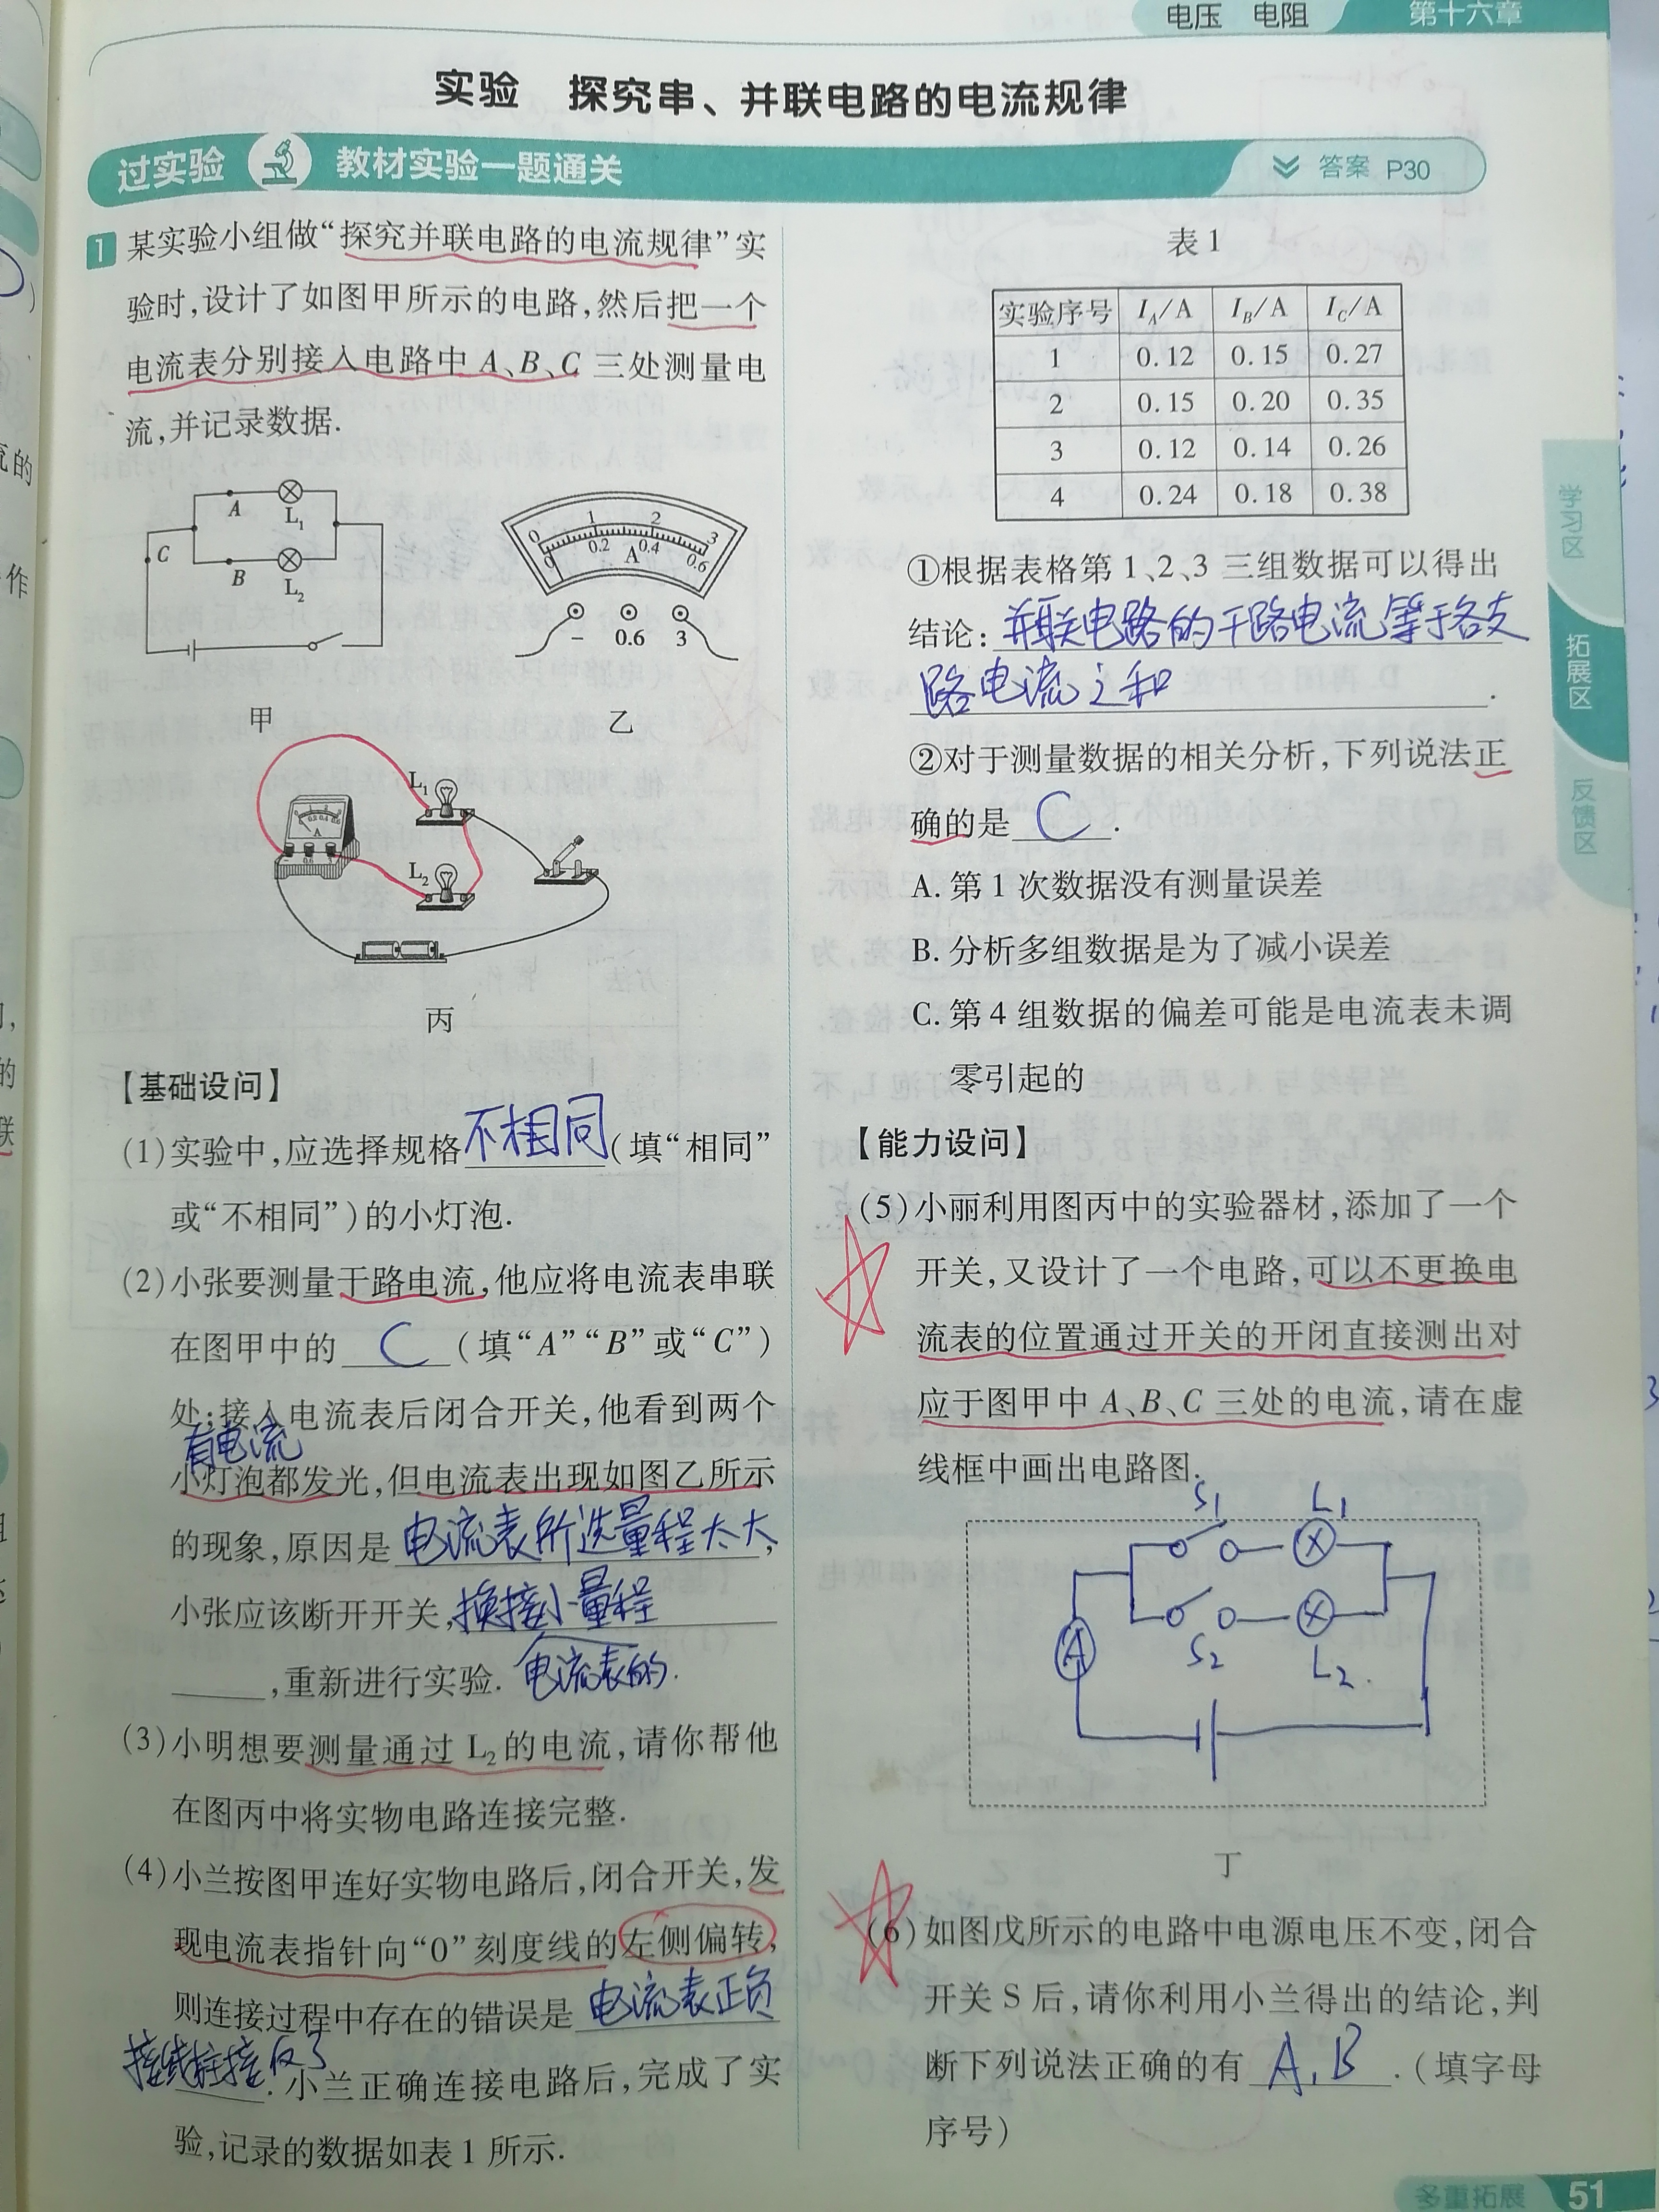 电压 电阻 第十六章
实验 探究串、并联电路的电流规律
过实验 教材实验一题通关 答案 P30
1 某实验小组做“探究并联电路的电流规律”实
验时,设计了如图甲所示的电路,然后把一个
电流表分别接入电路中 A、B、C 三处测量电
流,并记录数据.
A L₁
C
B L₂
甲
0 1 2 3
0 0.2 0.4 0.6
A
− 0.6 3
乙
L₁
L₂
丙
【基础设问】
(1)实验中,应选择规格不相同(填“相同”
或“不相同”)的小灯泡.
(2)小张要测量干路电流,他应将电流表串联
在图甲中的 C (填“A”“B”或“C”)
处;接入电流表后闭合开关,他看到两个
有电流
小灯泡都发光,但电流表出现如图乙所示
的现象,原因是电流表所选量程太大,
小张应该断开开关,换接小量程
,重新进行实验. 电流表的.
(3)小明想要测量通过 L₂ 的电流,请你帮他
在图丙中将实物电路连接完整.
(4)小兰按图甲连好实物电路后,闭合开关,发
现电流表指针向“0”刻度线的左侧偏转,
则连接过程中存在的错误是电流表正负
接线柱接反了.小兰正确连接电路后,完成了实
验,记录的数据如表 1 所示.
表 1
实验序号 I_A/A I_B/A I_C/A
1 0.12 0.15 0.27
2 0.15 0.20 0.35
3 0.12 0.14 0.26
4 0.24 0.18 0.38
①根据表格第 1、2、3 三组数据可以得出
结论:并联电路的干路电流等于各支
路电流之和.
②对于测量数据的相关分析,下列说法正
确的是 C .
A. 第 1 次数据没有测量误差
B. 分析多组数据是为了减小误差
C. 第 4 组数据的偏差可能是电流表未调
零引起的
【能力设问】
(5)小丽利用图丙中的实验器材,添加了一个
开关,又设计了一个电路,可以不更换电
流表的位置通过开关的开闭直接测出对
应于图甲中 A、B、C 三处的电流,请在虚
线框中画出电路图.
S1 L1
A
S2 L2.
丁
(6)如图戊所示的电路中电源电压不变,闭合
开关 S 后,请你利用小兰得出的结论,判
断下列说法正确的有 A、B .(填字母
序号)
学习区
拓展区
反馈区
多重拓展 51